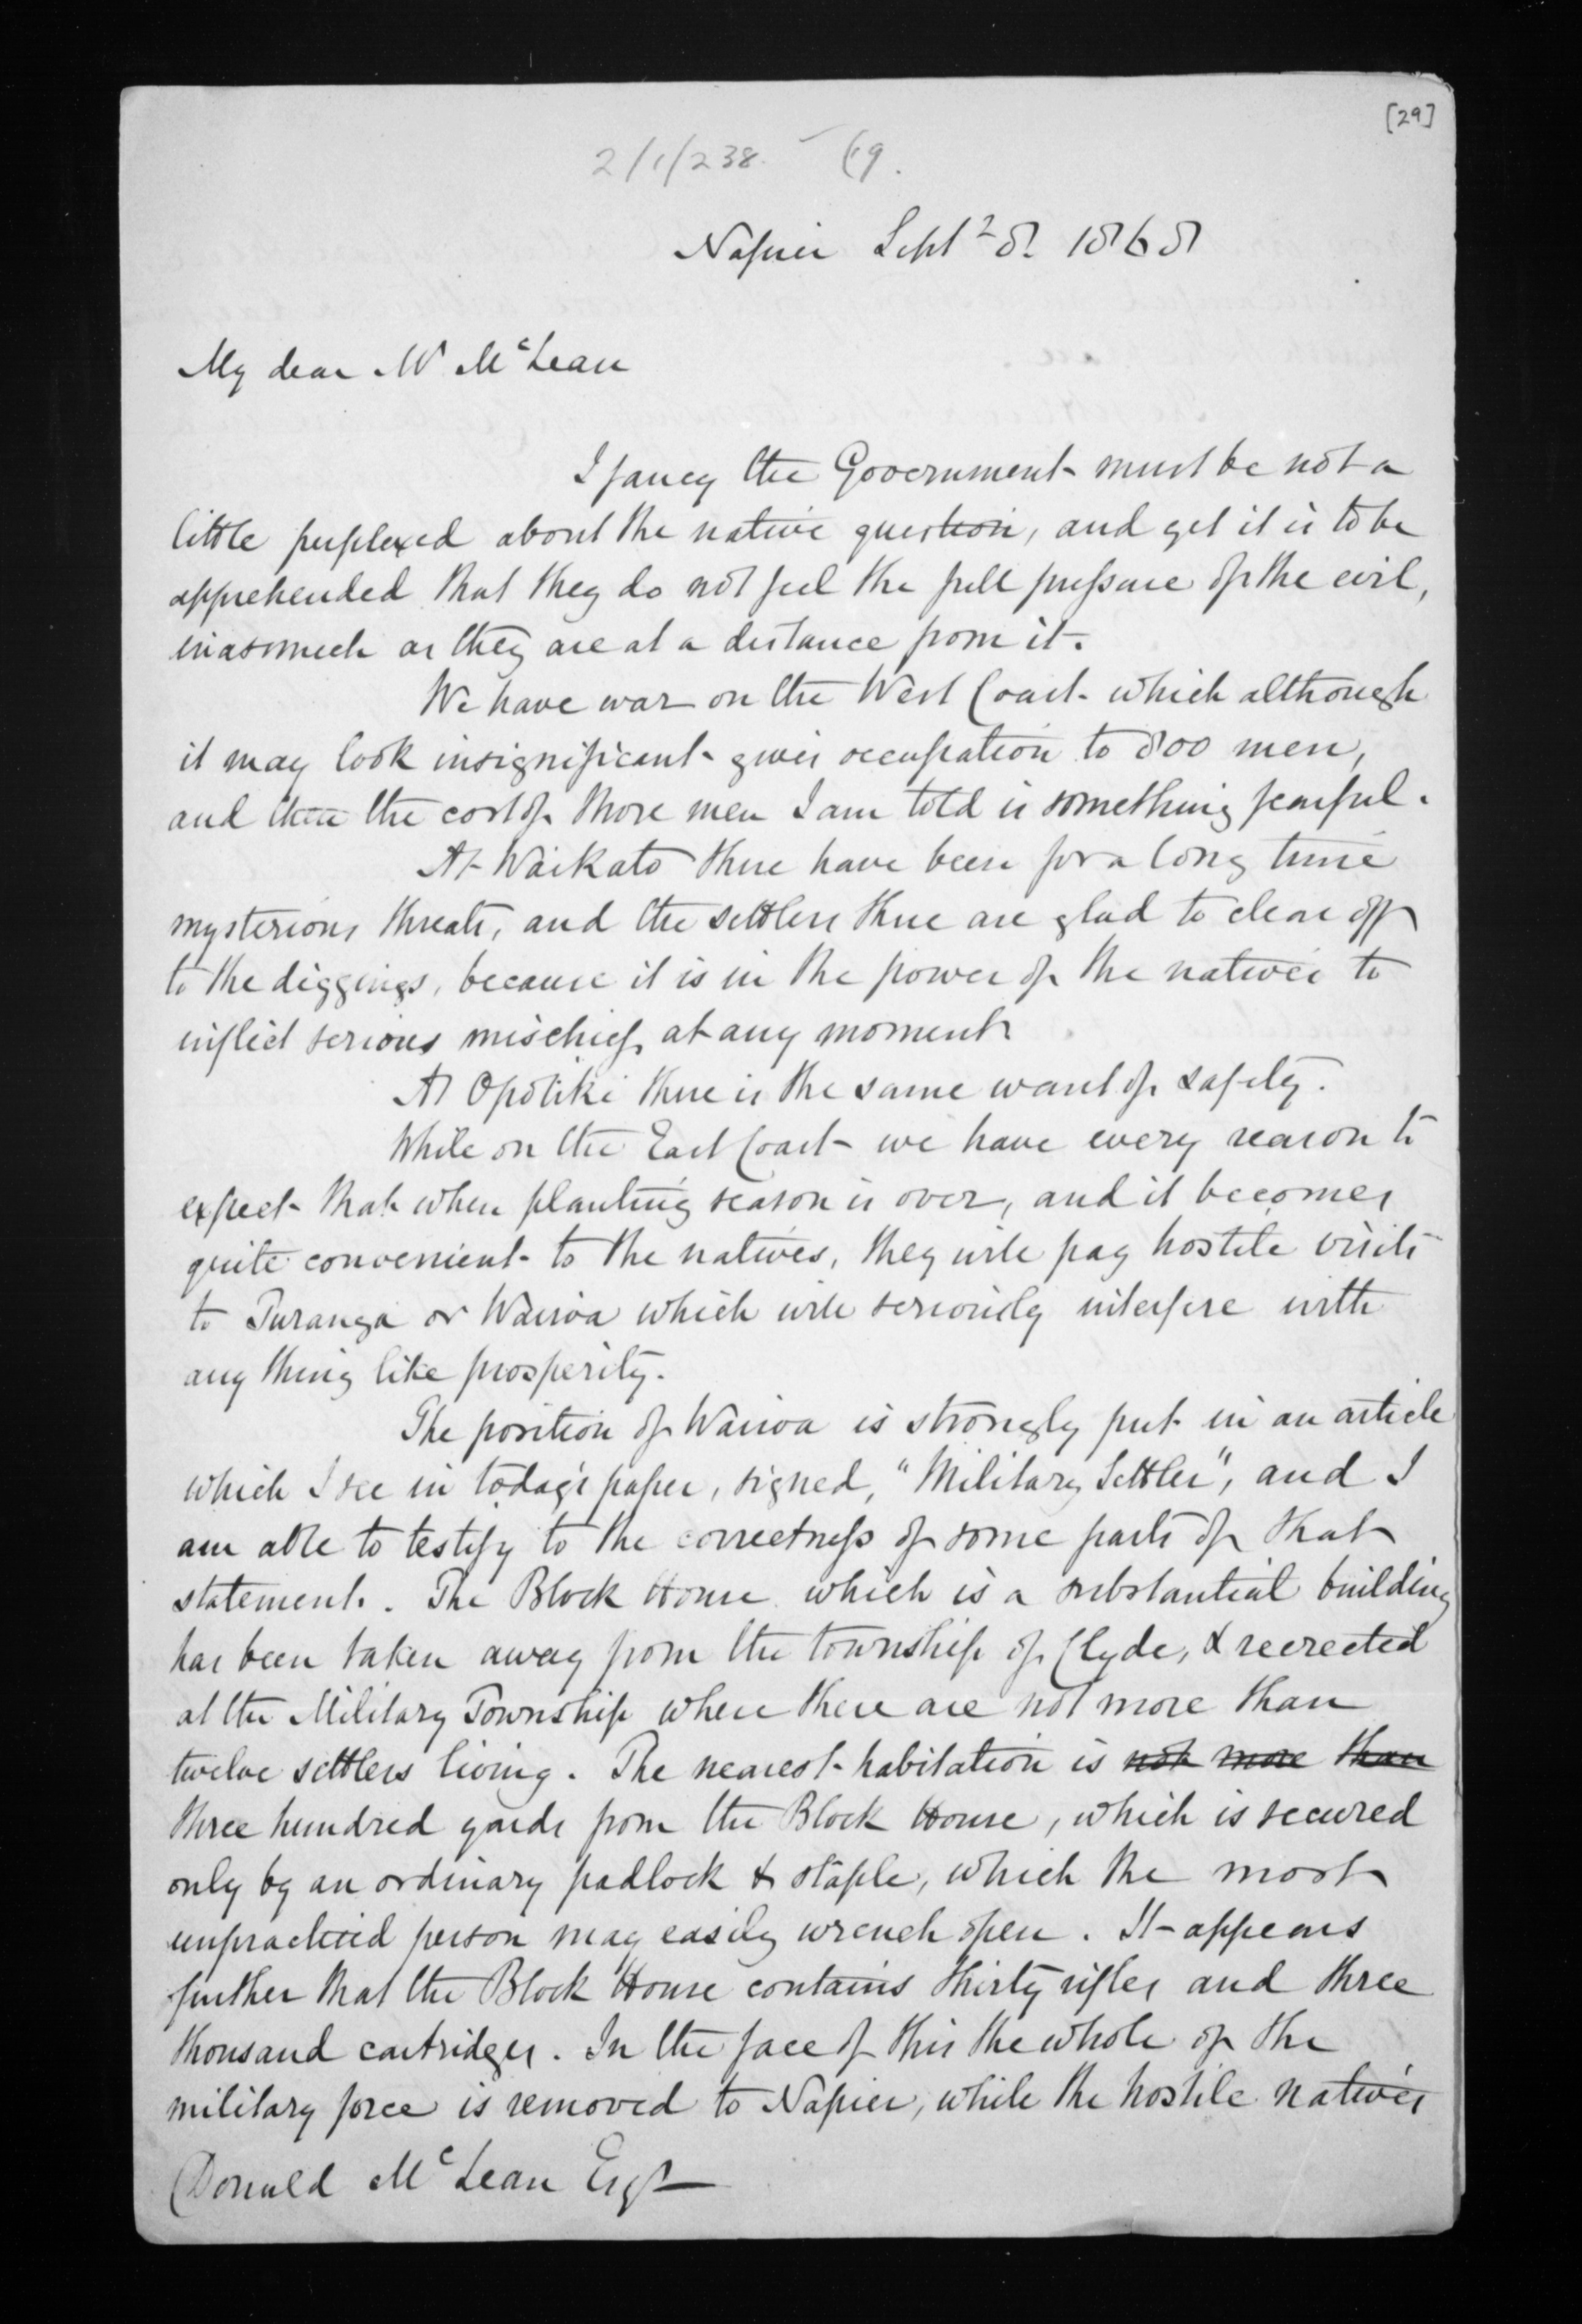 [29]
2/1/238. 69.
Napier Sept 28. 1868
My dear Mr McLean
I fancy the Government must be not a
little perplexed about the native question, and yet it is to be
apprehended that they do not feel the full pressure of the evil,
inasmuch as they are at a distance from it.
We have war on the West Coast which although
it may look insignificant gives occupation to 800 men,
and then the cost of those men I am told is something fearful.
At Waikato there have been for a long time
mysterious threats, and the settlers there are glad to clear off
to the diggings, because it is in the power of the natives to
inflict serious mischief at any moment
At Opotiki there is the same want of safety.
While on the East Coast we have every reason to
expect that when planting season is over, and it becomes
quite convenient to the natives, they will pay hostile visits
to Turanga or Wairoa which will seriously interfere with
any thing like prosperity.
The position of Wairoa is strongly put in an article
which I see in today's paper, signed, "Military Settler", and I
am able to testify to the correctness of some parts of that
statement. The Block House which is a substantial building
has been taken away from the township of Clyde, & reerected
at the Military Township where there are not more than
twelve settlers living. The nearest habitation is not more than
three hundred yards from the Block House, which is secured
only by an ordinary padlock & staple, which the most
unpracticed person may easily wrench open. It appears
further that the Block House contains thirty rifles and three
thousand cartridges. In the face of this the whole of the
military force is removed to Napier, while the hostile natives
Donald McLean Esqr